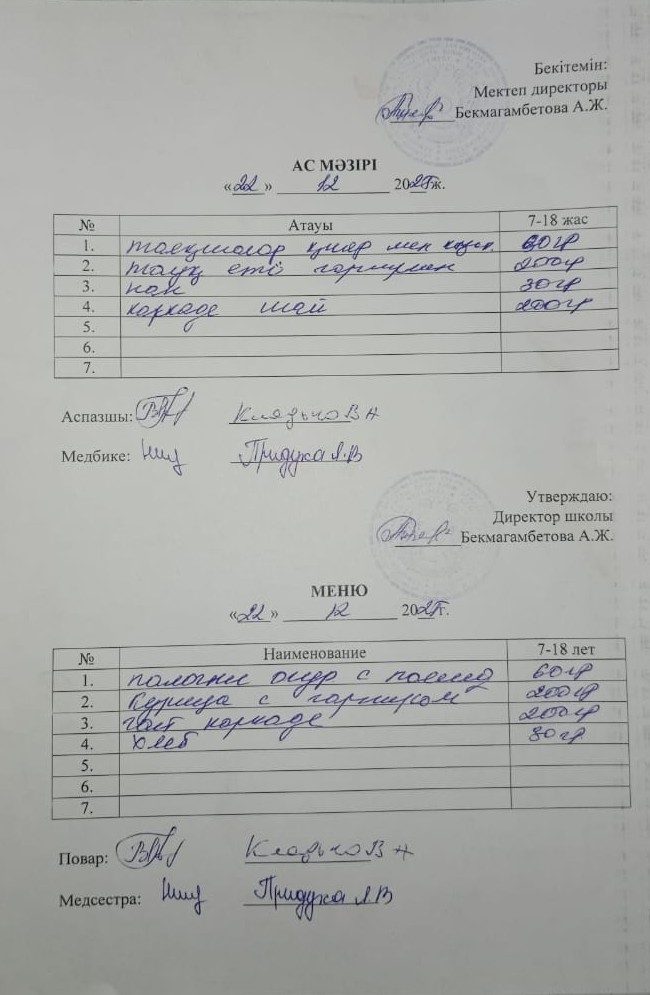 Бекітемін:
Мектеп директоры
Бекмагамбетова А.Ж.
АС МӘЗІРІ
«22» 12 2025ж.
№ Атауы 7-18 жас
1. таяқшалар қияр мен 60гр
2. тауық еті гарнирмен 200гр
3. нан 30гр
4. каркаде шай 200гр
5.
6.
7.
Аспазшы: Кладько В Н
Медбике: Придуха Л.В
Утверждаю:
Директор школы
Бекмагамбетова А.Ж.
МЕНЮ
«22» 12 2025г.
№ Наименование 7-18 лет
1. палочки огур с 60гр
2. Курица с гарниром 200гр
3. чай каркаде 200гр
4. хлеб 30гр
5.
6.
7.
Повар: Кладько В Н
Медсестра: Придуха Л В